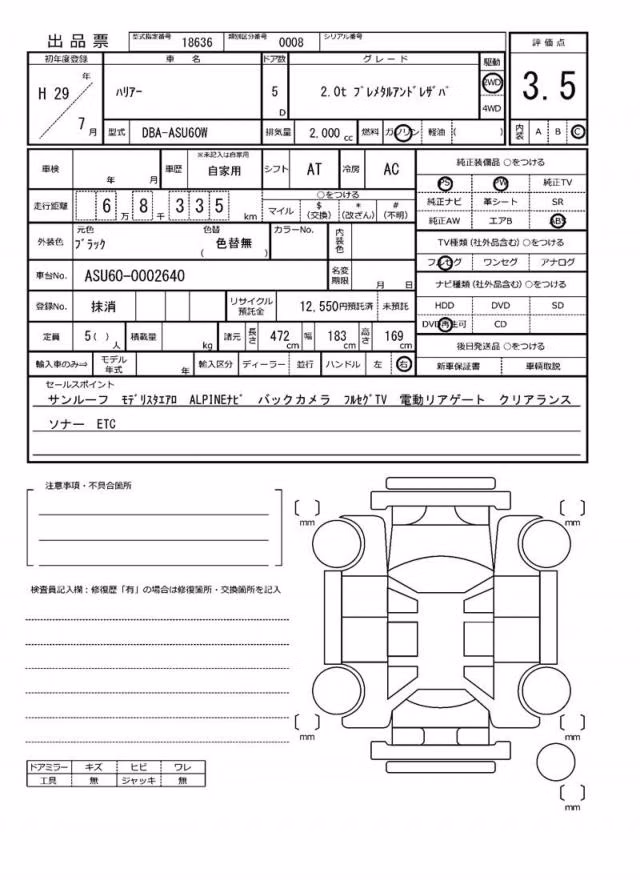 出品票 型式指定番号 18636 類別区分番号 0008 シリアル番号
初年度登録 車名 ドア数 グレード 駆動 評価点
H 29 年 7 月 ﾊﾘｱｰ 5 D 2.0t ﾌﾟﾚﾒﾀﾙｱﾝﾄﾞﾚｻﾞﾊﾞ 2WD 4WD 3.5
型式 DBA-ASU60W 排気量 2,000 cc 燃料 ガソリン 軽油 ( ) 内装 A B C
車検 年 月 車歴 ※未記入は自家用 自家用 シフト AT 冷房 AC
純正装備品 ○をつける
PS PW 純正TV
純正ナビ 革シート SR
純正AW エアB ABS
走行距離 6 万 8 千 3 3 5 km
○をつける
マイル $ (交換) * (改ざん) # (不明)
TV種類 (社外品含む) ○をつける
フルセグ ワンセグ アナログ
外装色 元色 ﾌﾞﾗｯｸ 色替 ( 色替無 ) カラーNo. 内装色
車台No. ASU60-0002640 名変期限 月 日
ナビ種類 (社外品含む) ○をつける
HDD DVD SD
DVD再生可 CD
登録No. 抹消 リサイクル預託金 12,550円預託済 未預託
定員 5 ( ) 人 積載量 kg 諸元 長さ 472 cm 幅 183 cm 高さ 169 cm
後日発送品 ○をつける
新車保証書 車輌取説
輸入車のみ⇒ モデル年式 年 輸入区分 ディーラー 並行 ハンドル 左 右
セールスポイント
サンルーフ ﾓﾃﾞﾘｽﾀｴｱﾛ ALPINEﾅﾋﾞ バックカメラ ﾌﾙｾｸﾞTV 電動リアゲート クリアランス
ソナー ETC
注意事項・不具合箇所
検査員記入欄：修復歴「有」の場合は修復箇所・交換箇所を記入
mm
mm
mm
mm
mm
ドアミラー キズ ヒビ ワレ
工具 無 ジャッキ 無